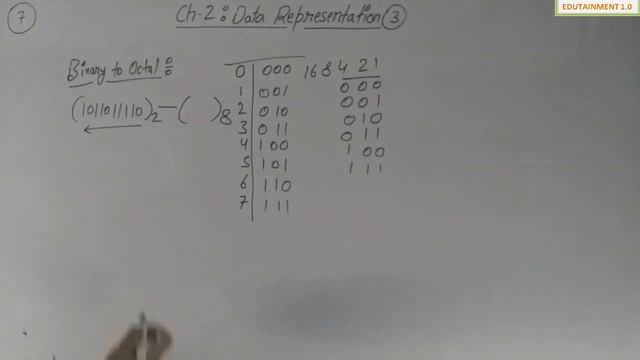 EDUTAINMENT 1.0
7
Ch-2: Data Representation 3
Binary to Octal:
(1011011110)2 — ( )8
0 000
1 001
2 010
3 011
4 100
5 101
6 110
7 111
16 8 4 2 1
0 0 0
0 0 1
0 1 0
0 1 1
1 0 0
1 1 1